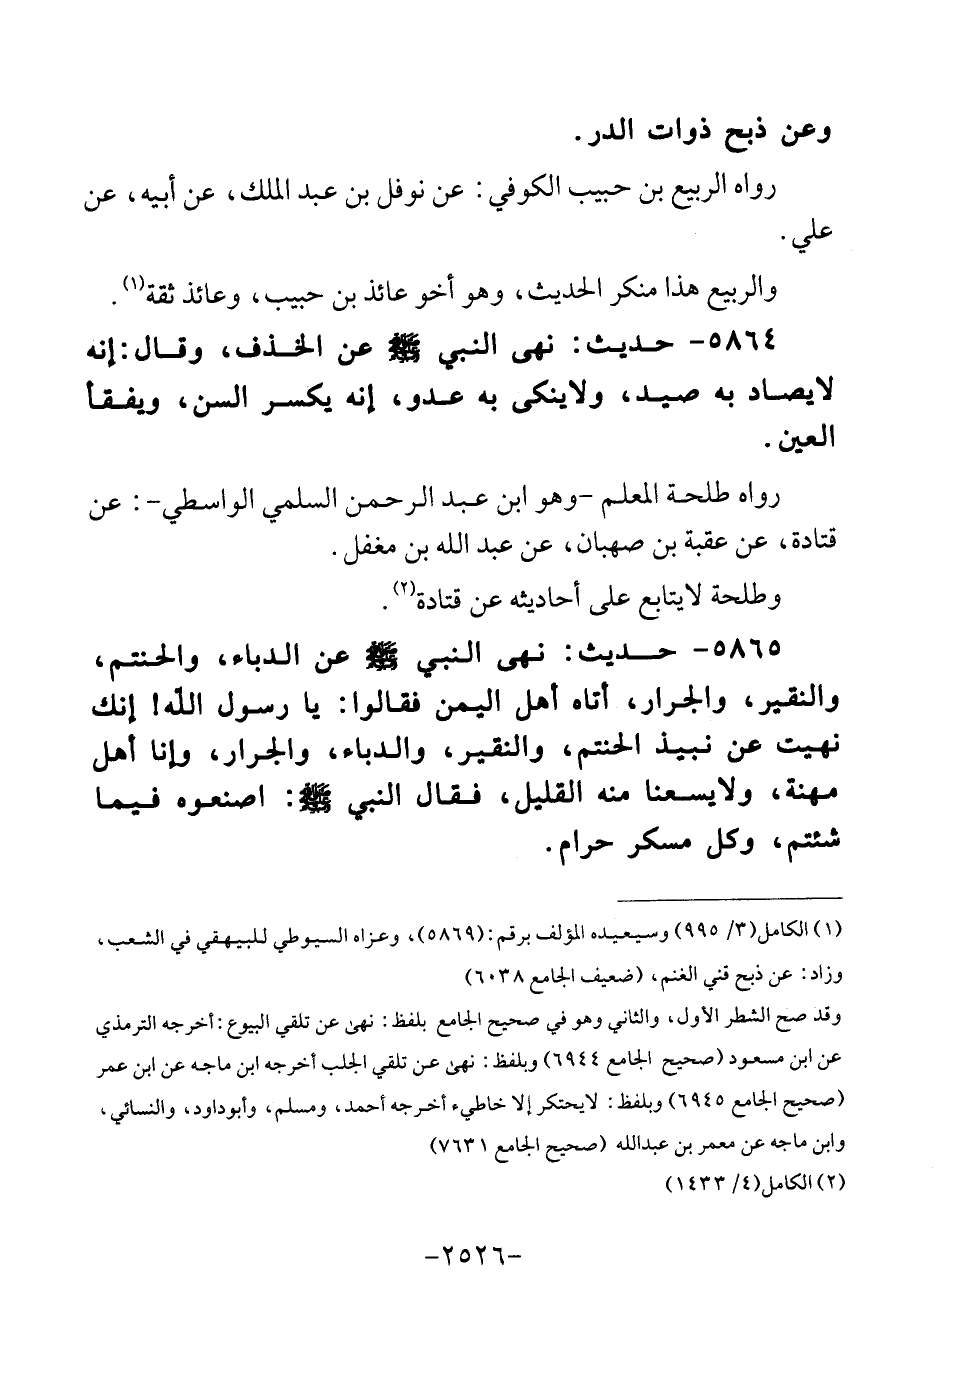 وعن ذبح ذوات الدر .
رواه الربيع بن حبيب الكوفي : عن نوفل بن عبد الملك، عن أبيه، عن
علي .
والربيع هذا منكر الحديث، وهو أخو عائذ بن حبيب، وعائذ ثقة(١) .
٥٨٦٤- حديث : نهى النبي ﷺ عن الخذف، وقال : إنه
لايصاد به صيد، ولاينكى به عدو، إنه يكسر السن، ويفقأ
العين .
رواه طلحة المعلم -وهو ابن عبد الرحمن السلمي الواسطي- : عن
قتادة، عن عقبة بن صهبان، عن عبد الله بن مغفل .
وطلحة لايتابع على أحاديثه عن قتادة(٢) .
٥٨٦٥- حديث : نهى النبي ﷺ عن الدباء، والحنتم،
والنقير، والجرار، أتاه أهل اليمن فقالوا : يا رسول الله! إنك
نهيت عن نبيذ الحنتم، والنقير، والدباء، والجرار، وإنا أهل
مهنة، ولايسعنا منه القليل، فقال النبي ﷺ : اصنعوه فيما
شئتم، وكل مسكر حرام .
(١) الكامل (٣/ ٩٩٥) وسيعيده المؤلف برقم : (٥٨٦٩)، وعزاه السيوطي للبيهقي في الشعب،
وزاد : عن ذبح قني الغنم، (ضعيف الجامع ٦٠٣٨)
وقد صح الشطر الأول، والثاني وهو في صحيح الجامع بلفظ : نهىٰ عن تلقي البيوع : أخرجه الترمذي
عن ابن مسعود (صحيح الجامع ٦٩٤٤) وبلفظ : نهىٰ عن تلقي الجلب أخرجه ابن ماجه عن ابن عمر
(صحيح الجامع ٦٩٤٥) وبلفظ : لايحتكر إلا خاطيء أخرجه أحمد، ومسلم، وأبوداود، والنسائي،
وابن ماجه عن معمر بن عبدالله (صحيح الجامع ٧٦٣١)
(٢) الكامل (٤/ ١٤٣٣)
-٢٥٢٦-